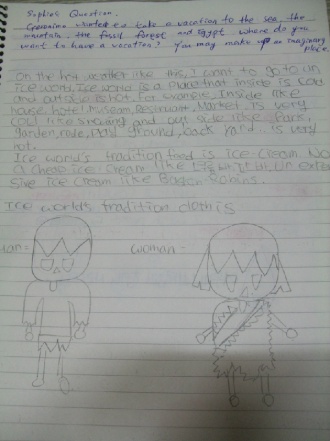 Sophie's Question.
Geronimo wanted to take a vacation to the sea, the
mountain, the fossil forest and Egypt. where do you
want to have a vacation? you may make up an imaginary
place.
On the hot weather like this, I want to go to in
ice world. Ice world is a place that inside is cold
and outside is hot. For example, Inside like
house, hotel, museum, Restaurant, Market.. is very
cold like snowing and out side like Park,
Garden, rode, play ground, back yard.. is very
hot.
Ice world's tradition food is Ice-cream. Not
a cheese ice-cream like
Size ice cream like Baskin Robins.
Ice world's tradition cloth is
man=
woman-